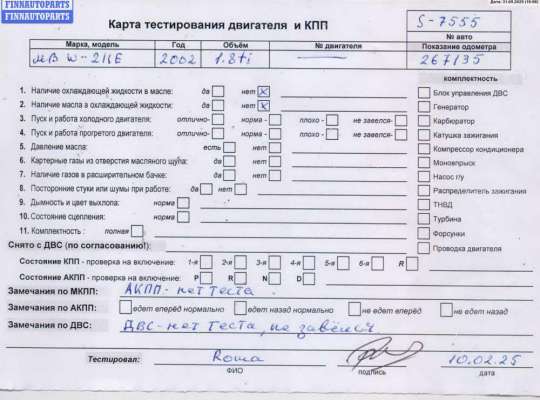 FINNAUTOPARTS
FINNAUTOPARTS
Дата: 31.05.2025
Карта тестирования двигателя и КПП
S-7555
№ авто
Марка, модель
Год
Объём
№ двигателя
Показание одометра
МВ W-211E
2002
1.8ti
267135
комплектность
1. Наличие охлаждающей жидкости в масле: да нет
2. Наличие масла в охлаждающей жидкости: да нет
3. Пуск и работа холодного двигателя: отлично- норма - плохо - не завелся-
4. Пуск и работа прогретого двигателя: отлично- норма - плохо - не завелся-
5. Давление масла: есть нет
6. Картерные газы из отверстия масляного щупа: да нет
7. Наличие газов в расширительном бачке: да нет
8. Посторонние стуки или шумы при работе: да нет
9. Дымность и цвет выхлопа: норма
10. Состояние сцепления: норма
11. Комплектность : полная
Блок управления ДВС
Генератор
Карбюратор
Катушка зажигания
Компрессор кондиционера
Моновпрыск
Насос г/у
Распределитель зажигания
ТНВД
Турбина
Форсунки
Проводка двигателя
Снято с ДВС (по согласованию!):
Состояние КПП - проверка на включение: 1-я 2-я 3-я 4-я 5-я 6-я R
Состояние АКПП - проверка на включение: P R N D
Замечания по МКПП: АКПП - нет теста
Замечания по АКПП: едет вперёд нормально едет назад нормально не едет вперёд не едет назад
Замечания по ДВС: ДВС - нет теста, не завёлся.
Тестировал: Roma 10.02.25
ФИО подпись дата